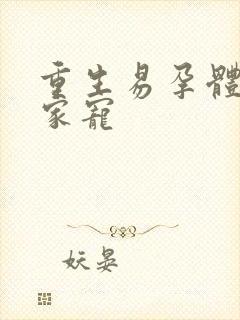 重生易孕體
家寵
妖晏